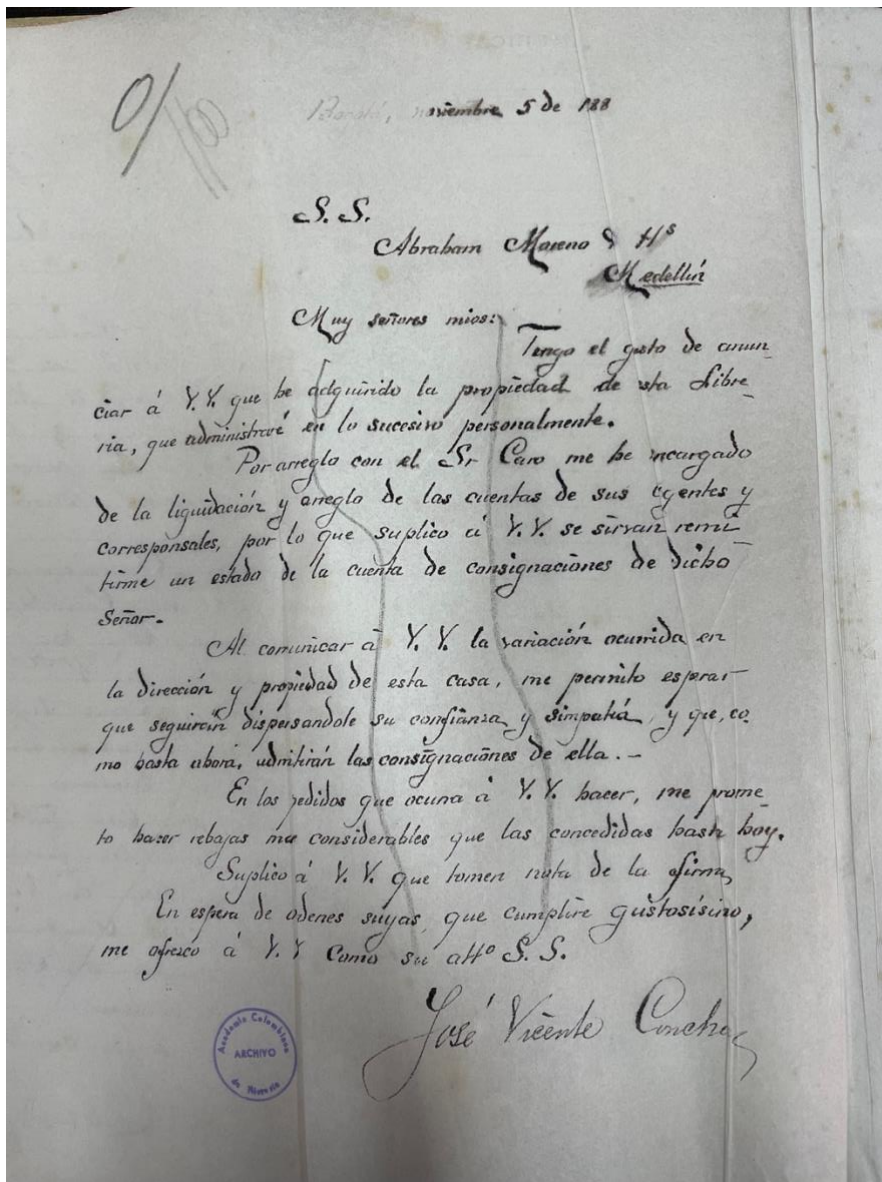 Bogotá, noviembre 5 de 188
S. S.
Abraham Moreno & Hs
Medellín
Muy señores mios:
Tengo el gusto de anun-
ciar á V.V. que he adquirido la propiedad de esta Libre-
ria, que administraré en lo sucesivo personalmente.
Por arreglo con el Sr Caro me he encargado
de la liquidación y arreglo de las cuentas de sus agentes y
corresponsales, por lo que suplico á V.V. se sirvan remi-
tirme un estado de la cuenta de consignaciones de dicho
Señor.
Al comunicar á V.V. la variación ocurrida en
la dirección y propiedad de esta casa, me permito esperar
que seguirán dispersandole su confianza y simpatiá, y que, co-
mo hasta ahora, admitirán las consignaciones de ella. -
En los pedidos que ocurra á V.V. hacer, me prome-
to hacer rebajas mas considerables que las concedidas hasta hoy.
Suplico á V.V. que tomen nota de la firma,
En espera de odenes suyas, que cumplire gustosísimo,
me ofrezco á V.V como su atto S.S.
José Vicente Concha
Academia Colombiana
ARCHIVO
de Historia